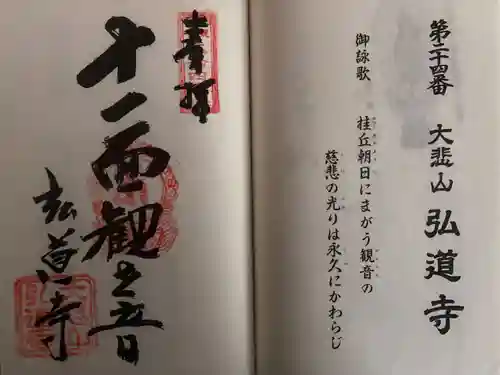 第二十四番 大悲山 弘道寺
御詠歌 桂丘朝日にまがう観音の
慈悲の光りは永久にかわらじ
奉拝
十一面観世音
弘道寺